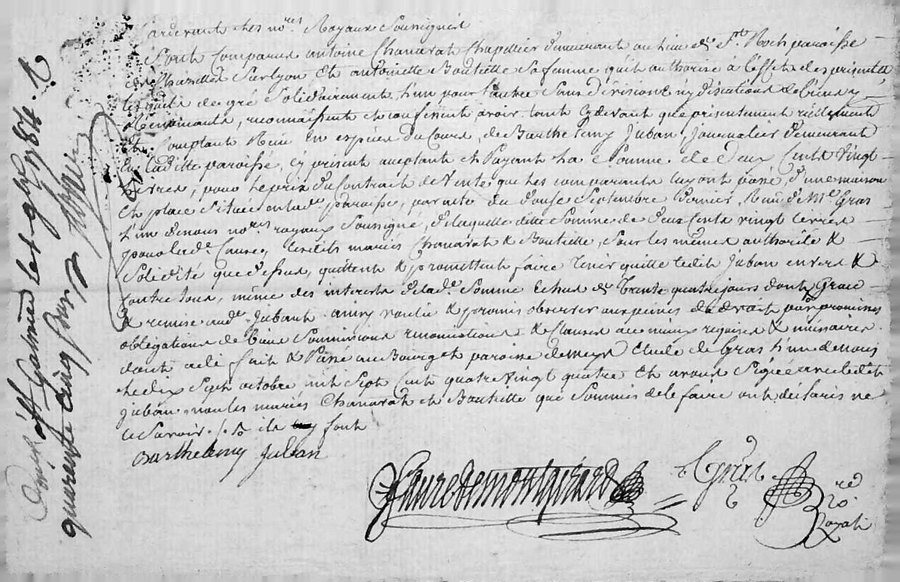 Pardevant les nores Royaux Soussignés
Sont comparus antoine Chanarat Chapellier demeurant au lieu de St Roch paroisse
de Chazelles Sur lyon Et antoinette Boutielle Sa femme qu'il authorise à l'effet des présentes
lesquels de gré Solidairement l'un pour l'autre Sans division ny discution de biens y
Renonceants, reconnaissent et confessent avoir tout cydevant que présentement réellement
et comptant Reçu en espèces du Cours, de Barthelemy Juban Journalier demeurant
en laditte paroisse, cy présent acceptant et Payant la Somme de deux Cents Vingt
livres, pour le prix du Contrait de Vente que les comparants luy ont passé d'une maison
et place Située en lade paroisse, par acte du douse Septembre dernier Reçu de Me Gras
l'un de nous nores royaux Soussignés, de laquelle ditte Somme de deux cents vingt livres
pour lade Cause, lesdits mariés Chanarat & Boutielle, Sous les mêmes authorité &
Solidité que dessus, quittent & promettent faire tenir quitte ledit Juban envers &
contre tous, même des interests de lade Somme Echus de trente quatre jours dont Grace
& remise aud. Juban. ainsy voulu & promis observer aux peines de droit par promesses
obligations de biens Soumissions renonciations & Clauses à ce mieux requises & nécessaires.
dont acte fait & Passé au Bourg et paroisse de meys Etude de Gras l'un de nous
le dix Sept octobre mil Sept Cent quatre Vingt quatre Et avons Signé avec ledit
Juban, non les mariés Chanarat et Boutielle qui Sommés de le faire ont déclarés ne
le Savoir
Barthelemy Juban
fauredemontgirard
Gras
nore
Royal
Contlé à St Galmier le 28bre 1784
quarente cinq Sols